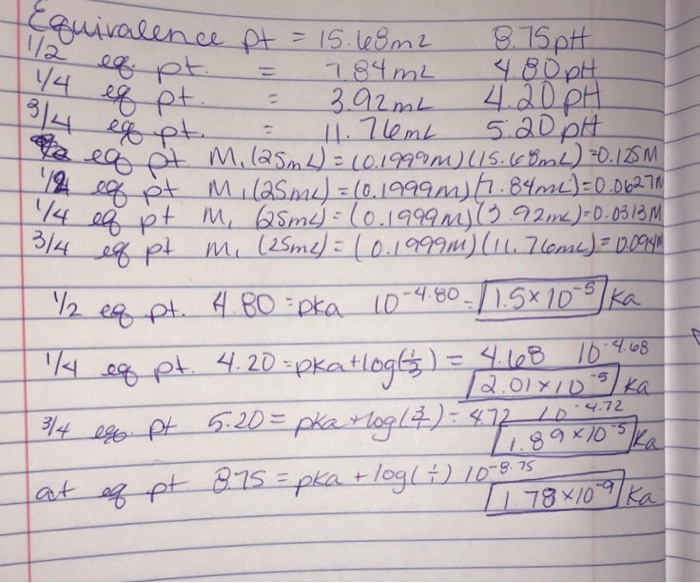 Equivalence pt = 15.68mL 8.75pH
1/2 eq. pt. = 7.84mL 4.80pH
1/4 eq pt. = 3.92mL 4.20pH
3/4 eq pt. = 11.76mL 5.20pH
eq pt M₁(25mL)=(0.1999M)(15.68mL)=0.125M
1/2 eq pt M₁(25mL)=(0.1999M)(7.84mL)=0.0627M
1/4 eq pt M₁ (25mL)=(0.1999M)(3.92mL)=0.0313M
3/4 eq pt M₁ (25mL)=(0.1999M)(11.76mL)=0.094M
1/2 eq pt. 4.80=pka 10^-4.80= 1.5×10^-5 Ka
1/4 eq pt. 4.20=pka+log(1/3) = 4.68 10^-4.68
2.01×10^-5 Ka
3/4 eq. pt 5.20= pka+log(3/1)=4.72 10^-4.72
1.89×10^-5 Ka
at eq pt 8.75=pka+log(÷) 10^-8.75
1.78×10^-9 Ka